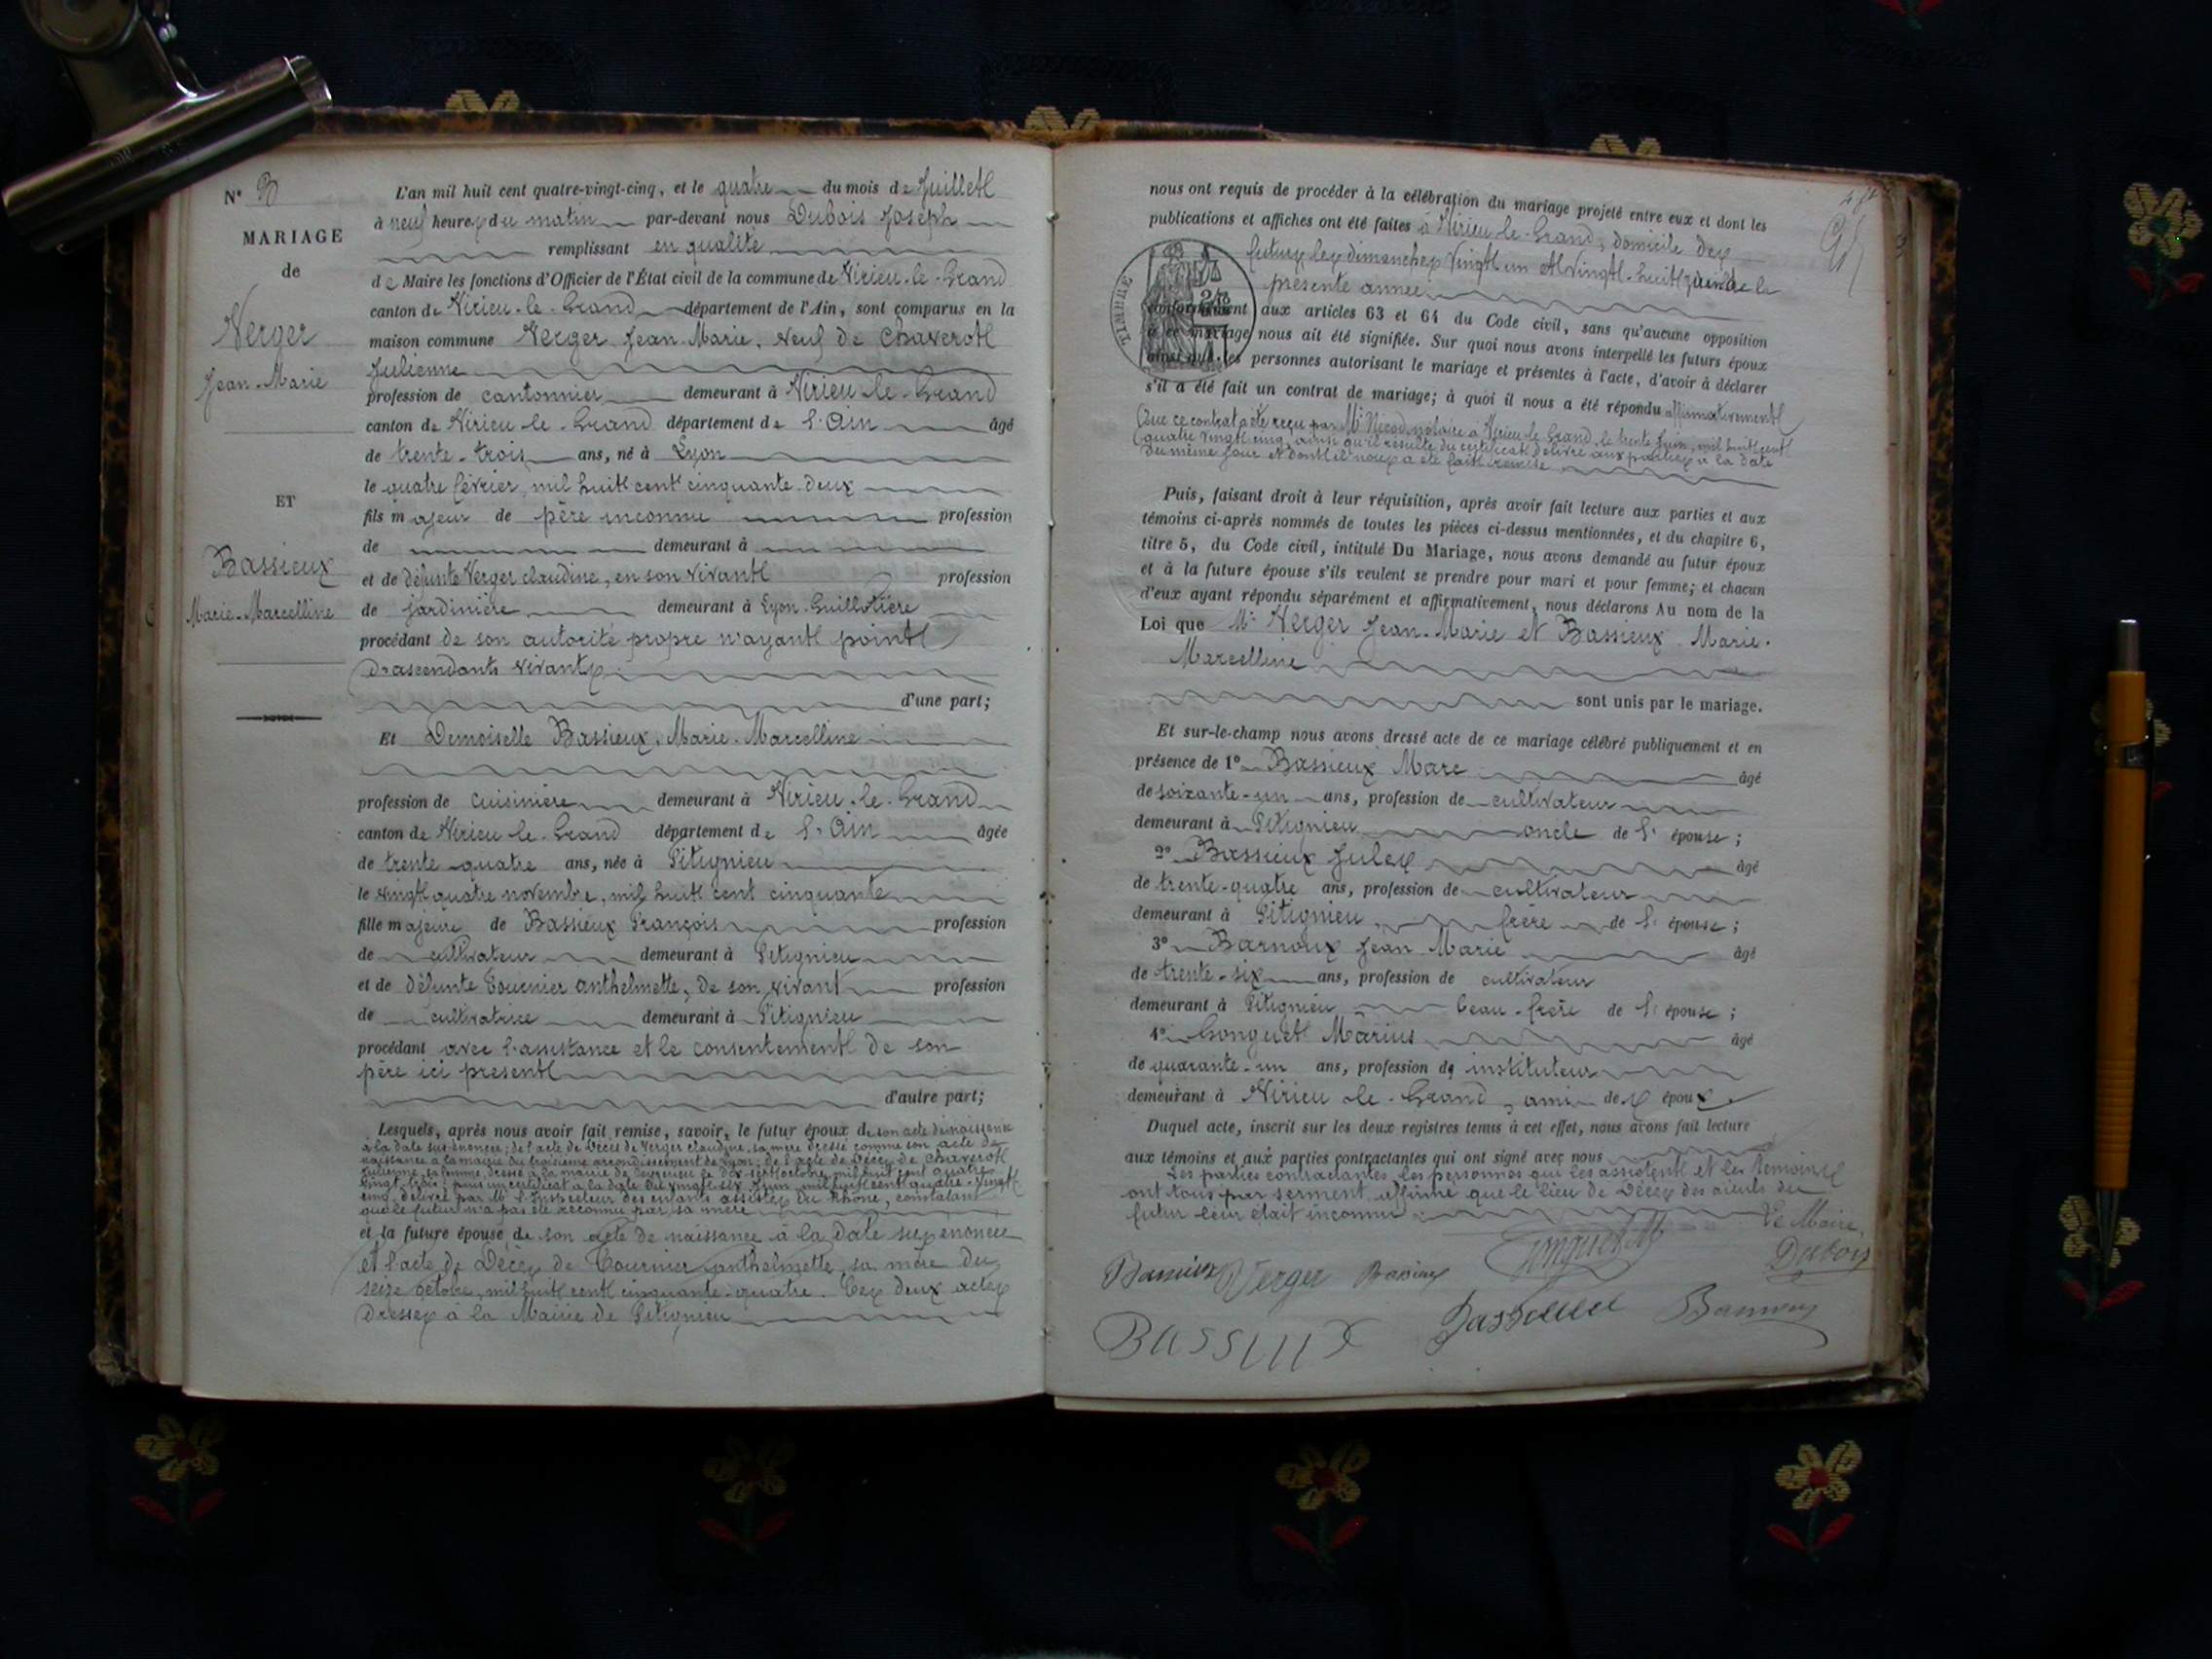 N° 3
MARIAGE
de
Verger
Jean-Marie
ET
Bassieux
Marie-Marcelline
L'an mil huit cent quatre-vingt-cinq, et le quatre du mois de Juillet
à neuf heures du matin par-devant nous Dubois Joseph
remplissant en qualité
de Maire les fonctions d'Officier de l'État civil de la commune de Virieu-le-Grand
canton de Virieu-le-Grand département de l'Ain, sont comparus en la
maison commune Verger Jean-Marie, veuf de Chaverot
Julienne
profession de cantonnier demeurant à Virieu-le-Grand
canton de Virieu-le-Grand département de l'Ain âgé
de trente-trois ans, né à Lyon
le quatre février, mil huit cent cinquante-deux
fils majeur de père inconnu profession
de demeurant à
et de défunte Verger claudine, en son vivant profession
de jardinière demeurant à Lyon-Guillotière
procédant de son autorité propre n'ayant point
d'ascendants vivants
d'une part;
Et Demoiselle Bassieux, Marie-Marcelline
profession de cuisinière demeurant à Virieu-le-Grand
canton de Virieu-le-Grand département de l'Ain âgée
de trente-quatre ans, née à Pitignieu
le vingt quatre novembre, mil huit cent cinquante
fille majeure de Bassieux François profession
de cultivateur demeurant à Pitignieu
et de défunte Tournier anthelmette, de son vivant profession
de cultivatrice demeurant à Pitignieu
procédant avec l'assistance et le consentement de son
père ici présent
d'autre part;
Lesquels, après nous avoir fait remise, savoir, le futur époux de son acte de naissance
à la date sus-énoncée; de l'acte de décès de Verger claudine, sa mère dressé comme son acte de
naissance à la mairie du troisième arrondissement de Lyon; de l'acte de décès de Chaverot
Julienne, sa femme, dressé à la mairie de dix-sept octobre, mil huit cent quatre-
vingt-trois; puis un certificat à la date du vingt-six Juin, mil huit cent quatre-vingt
cinq, délivré par Mr l'Inspecteur des enfants assistés du Rhône, constatant
que le futur n'a pas été reconnu par sa mère
et la future épouse, de son acte de naissance à la date susénoncée
et l'acte de Décès de Tournier anthelmette, sa mère du
seize octobre, mil huit cent cinquante-quatre. Ces deux actes
dressés à la Mairie de Pitignieu
nous ont requis de procéder à la célébration du mariage projeté entre eux et dont les
publications et affiches ont été faites à Virieu-le-Grand, domicile des
futurs les dimanches vingt un et vingt-huit juin de la
présente année
TIMBRE
conformément aux articles 63 et 64 du Code civil, sans qu'aucune opposition
à ce mariage nous ait été signifiée. Sur quoi nous avons interpellé les futurs époux
ainsi que les personnes autorisant le mariage et présentes à l'acte, d'avoir à déclarer
s'il a été fait un contrat de mariage; à quoi il nous a été répondu affirmativement
Que ce contrat a été reçu par Mr Nicod, notaire à Virieu-le-Grand, le trente Juin, mil huit cent
quatre vingt cinq, ainsi qu'il résulte du certificat délivré aux parties à la date
du même jour et dont il nous a été fait remise
Puis, faisant droit à leur réquisition, après avoir fait lecture aux parties et aux
témoins ci-après nommés de toutes les pièces ci-dessus mentionnées, et du chapitre 6,
titre 5, du Code civil, intitulé Du Mariage, nous avons demandé au futur époux
et à la future épouse s'ils veulent se prendre pour mari et pour femme; et chacun
d'eux ayant répondu séparément et affirmativement, nous déclarons Au nom de la
Loi que Mr Verger Jean-Marie et Bassieux Marie-
Marcelline
sont unis par le mariage.
Et sur-le-champ nous avons dressé acte de ce mariage célébré publiquement et en
présence de 1° Bassieux Marc âgé
de soixante-un ans, profession de cultivateur
demeurant à Pitignieu oncle de l'épouse;
2° Bassieux Jules âgé
de trente-quatre ans, profession de cultivateur
demeurant à Pitignieu frère de l'épouse;
3° Barnoux Jean Marie âgé
de trente-six ans, profession de cultivateur
demeurant à Pitignieu beau-frère de l'épouse;
4° Gonguet Marius âgé
de quarante-un ans, profession de instituteur
demeurant à Virieu-le-Grand, ami des époux.
Duquel acte, inscrit sur les deux registres tenus à cet effet, nous avons fait lecture
aux témoins et aux parties contractantes qui ont signé avec nous
Les parties contractantes les personnes qui les assistent et les témoins
ont tous par serment affirmé que le lieu de Décès des aïeuls du
futur leur était inconnu
Le Maire,
Dubois
Bassieux Verger Bassieux Gonguet M
BASSIUX Bassieux Barnoux